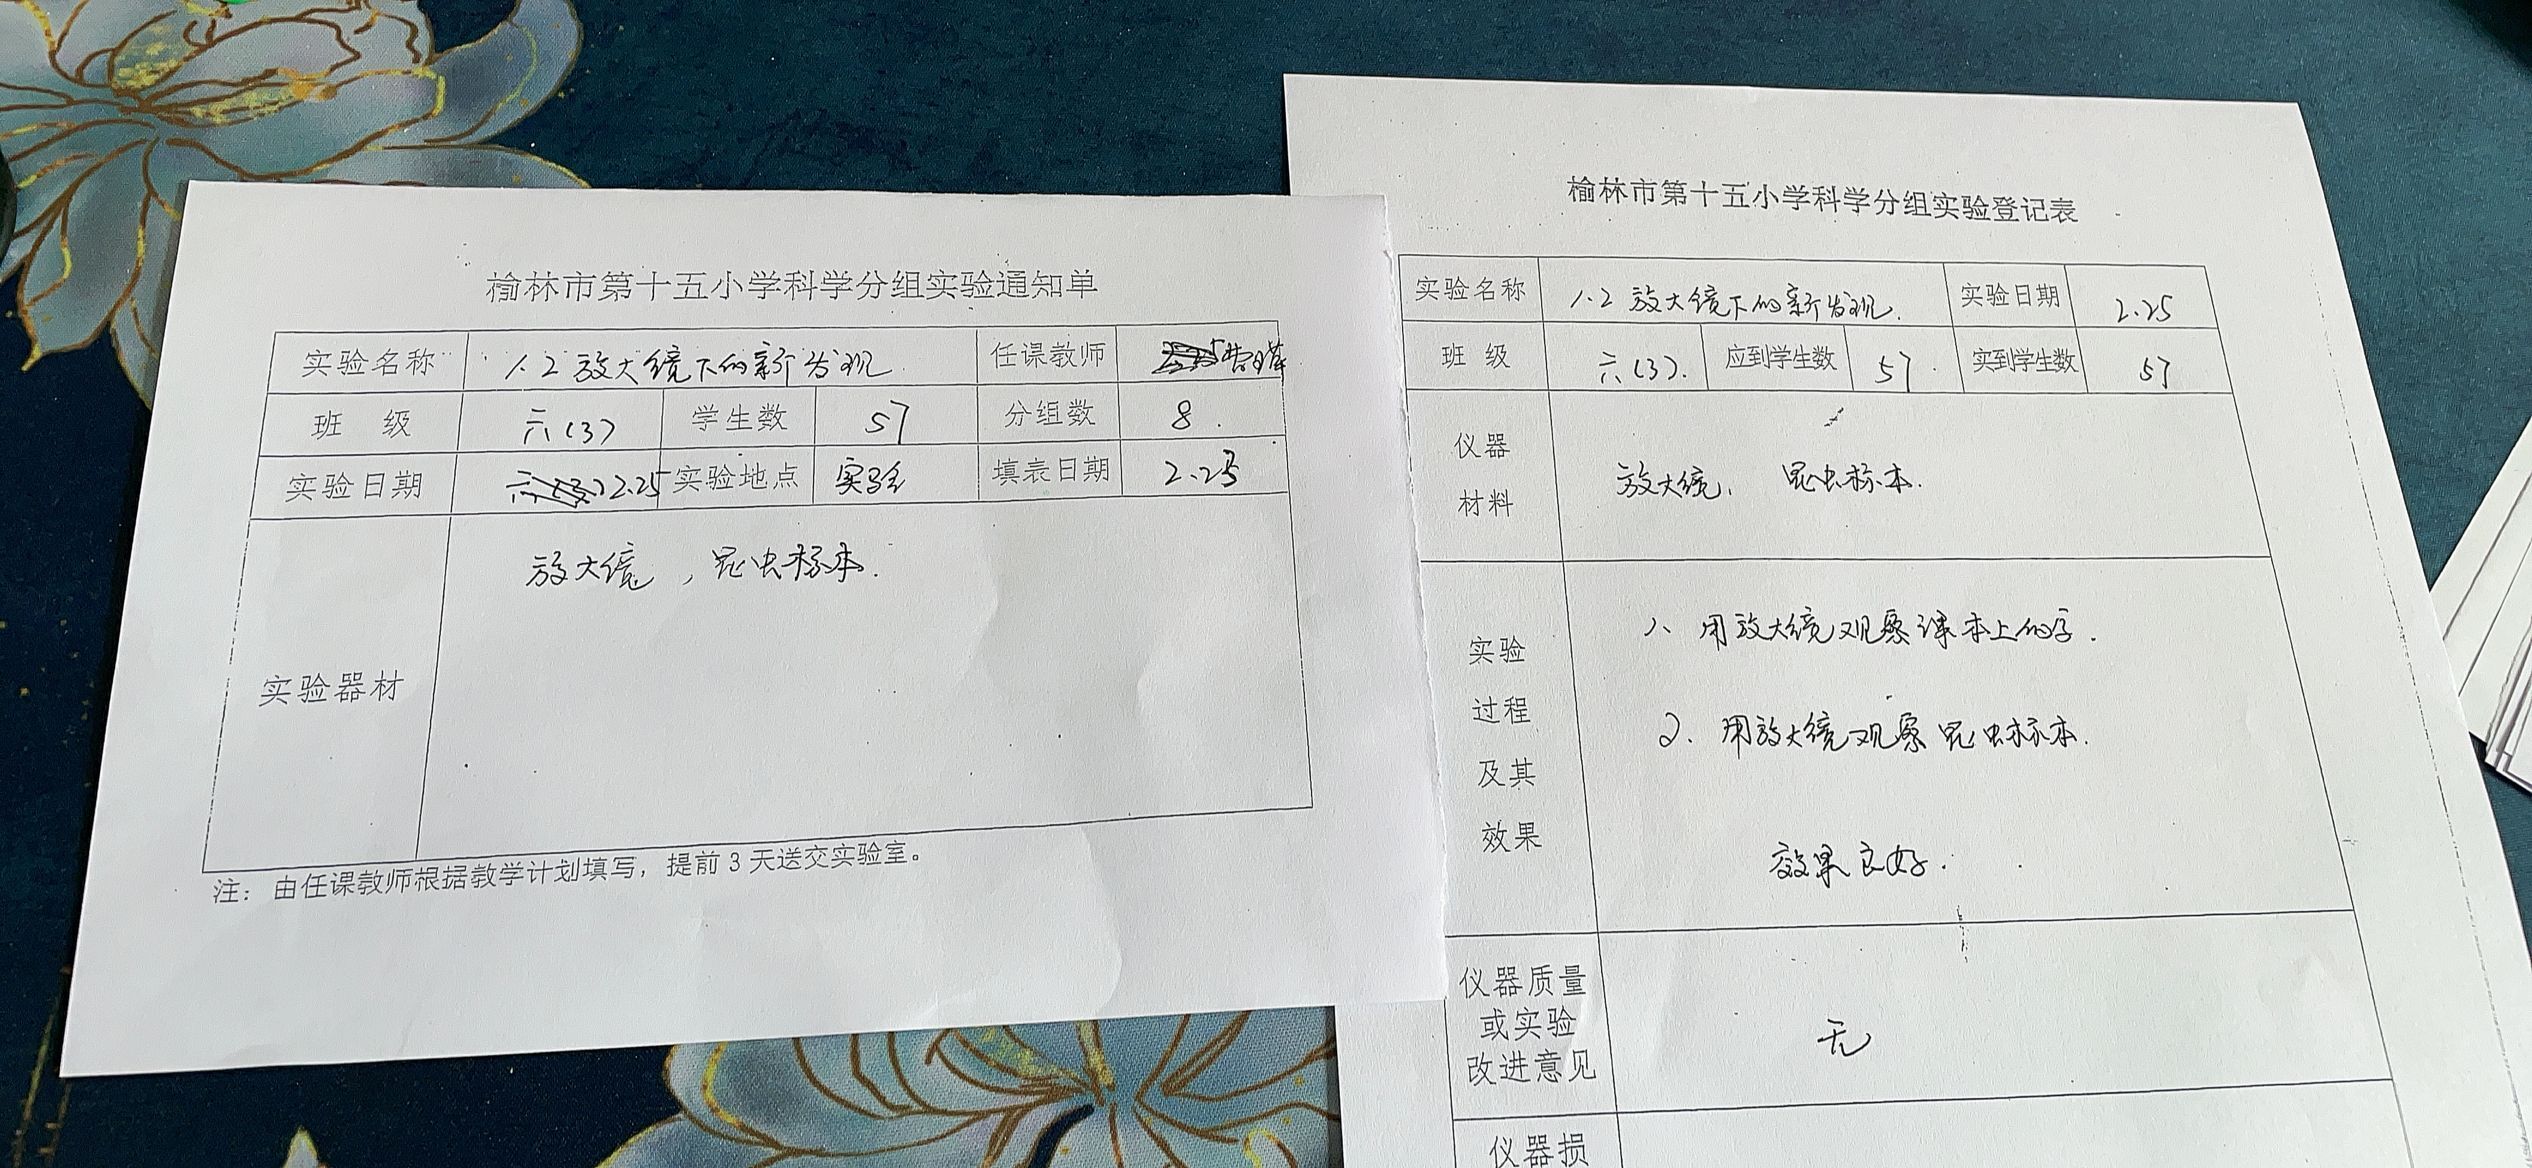 榆林市第十五小学科学分组实验通知单
实验名称 1.2 放大镜下的新发现 任课教师
班 级 六(3) 学生数 57 分组数 8
实验日期 2.25 实验地点 实验 填表日期 2.25
实验器材 放大镜，昆虫标本.
注：由任课教师根据教学计划填写，提前 3 天送交实验室。
榆林市第十五小学科学分组实验登记表
实验名称 1.2 放大镜下的新发现. 实验日期 2.25
班 级 六(3). 应到学生数 57 实到学生数 57
仪器
材料
放大镜, 昆虫标本.
实验
过程
及其
效果
1、用放大镜观察课本上的字.
2、用放大镜观察昆虫标本.
效果良好.
仪器质量
或实验
改进意见
无
仪器损